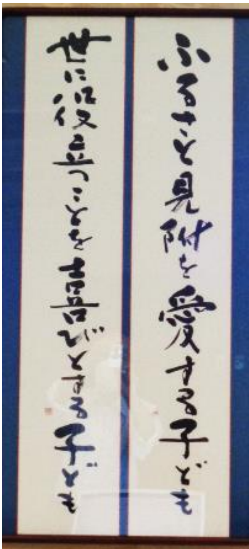 ふるさと見附を愛する子ども
世に役立つことを喜びとする子ども